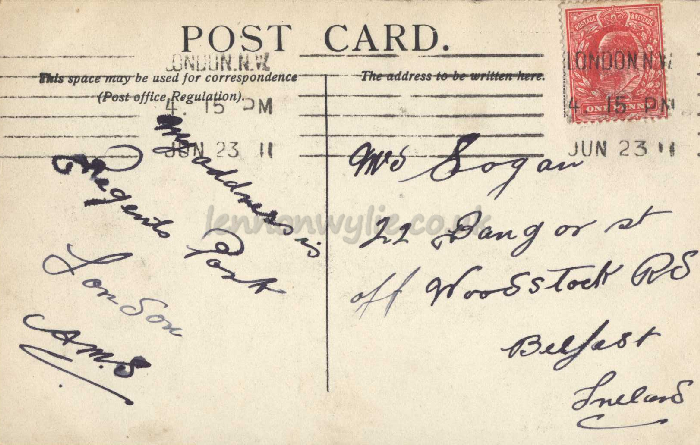 POST CARD.
This space may be used for correspondence
(Post office Regulation).
The address to be written here.
POSTAGE REVENUE
ONE PENNY
LONDON.N.W.
4. 15 PM
JUN 23 11
LONDON.N.W.
4. 15 PM
JUN 23 11
My address is
Regents Park
London
A.M.S
Mrs Logan
22 Bangor st
off Woodstock Rd
Belfast
Ireland
lennonwylie.co.uk